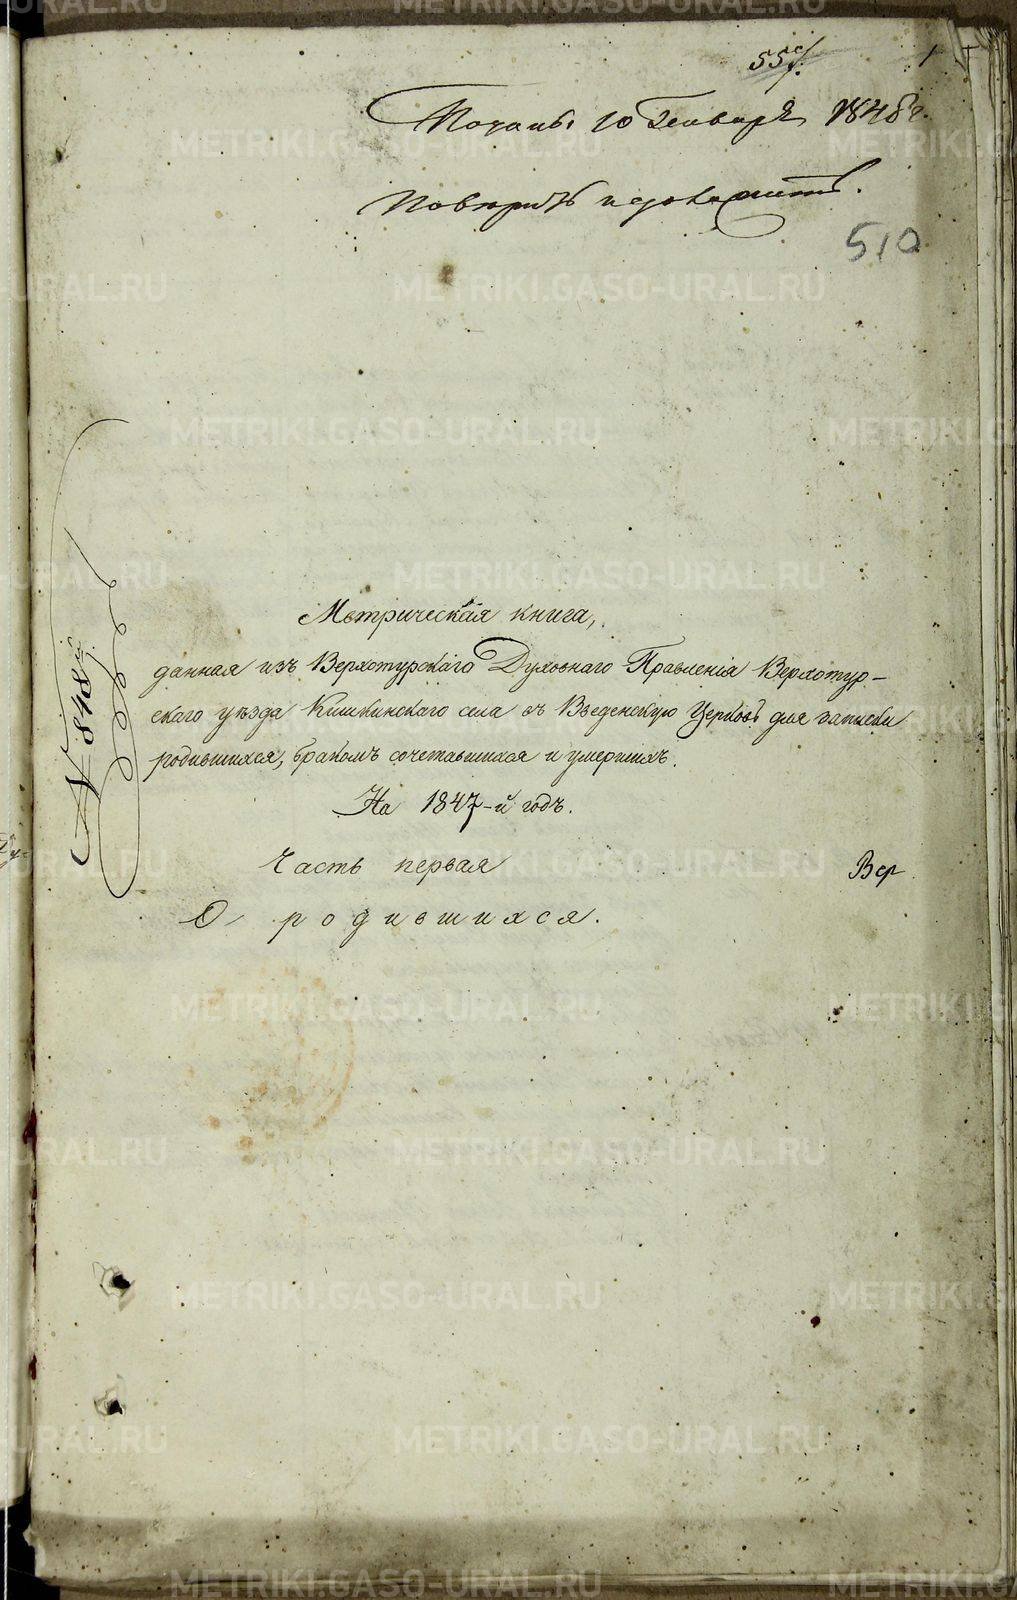 55 1
Подань 10 Генваря 1848 г.
Поверить и доложить.
510
№ 848й
Метрическая книга,
данная изъ Верхотурскаго Духовнаго Правленія Верхотур-
скаго уѣзда Кишкинскаго села въ Введенскую Церковь для записки
родившихся, бракомъ сочетавшихся и умершихъ.
На 1847-й годъ.
Часть первая
Вер
О родившихся.
METRIKI.GASO-URAL.RU